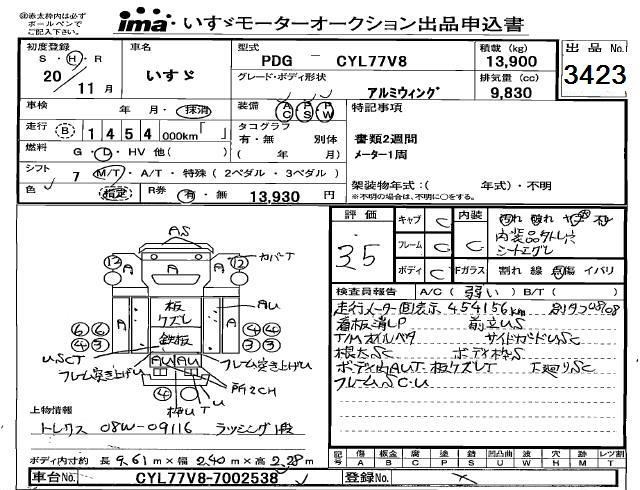 ㊟赤太枠内は必ず
ボールペンで
ご記入下さい。
ima いすゞモーターオークション出品申込書
初度登録
S・H・R
20年 11月
車名
いすゞ
型式
PDG － CYL77V8
グレード・ボディ形状
アルミウィング
積載 (kg)
13,900
排気量 (cc)
9,830
出品No.
3423
車検 年 月・抹消
装備 AC PS PW
特記事項
走行 B 1 4 5 4 000km「 」
タコグラフ
有・無 別体
( 年 月)
書類2週間
メーター1周
燃料 G・D・HV 他( )
シフト 7 M/T・A/T・特殊 ( 2ペダル・3ペダル )
色 指定 R券 有・無 13,930 円
架装物年式:( 年式)・不明
※不明の場合は、不明に○をする。
評価
3.5
キャブ C
フレーム C
ボディ C
内装 C
汚れ 破れ ヤニ
内装品欠トレ穴
シートエグレ
Fガラス 割れ 線 点傷 イバリ
検査員報告 A/C ( 弱い ) B/T ( )
走行メーター1回表示 454156km
看板消しP 前立US
T/Mオイルベタ サイドガードUSC
根太SC ボディ枠S
ボディ内AUT・板ケズレT 下廻りSC
フレームSC・U
AS
カバーT
12 A A A 12
板
ケズレ
鉄板
AU
A A
6 6
4 3
4 4
3 3
USCT
AU AU
フレーム突き上げU
フレーム突き上げU
U
所々CH
4
枠UT
上物情報
トレクス 08W-09116 ラッシング1段
ボディ内寸約 長 9.61m × 幅 2.40m × 高 2.28m
記号 傷A 板金B 腐C 塗P 錆S 凹凸曲U 波W 穴H 跡M レツ割T
車台No. CYL77V8-7002538
登録No.